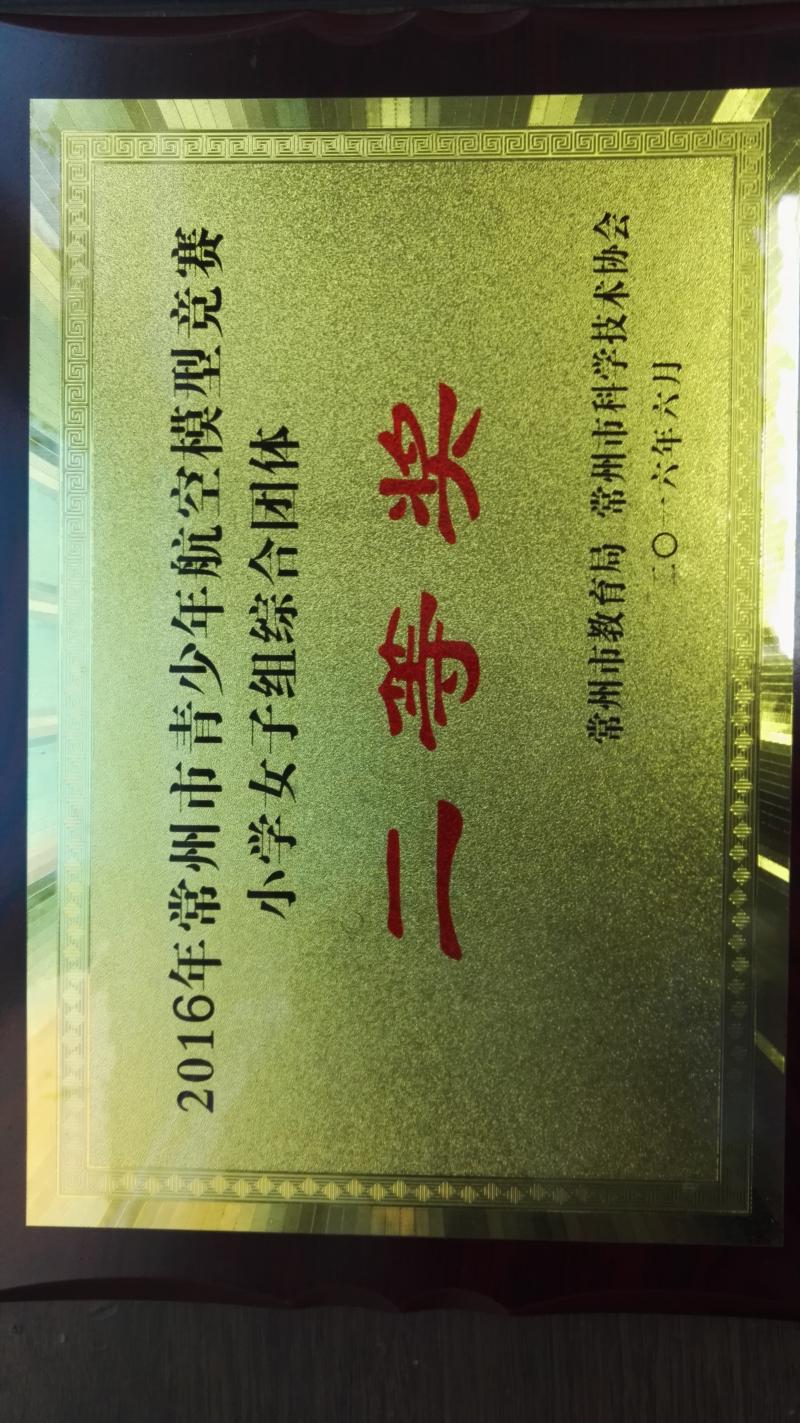 2016年常州市青少年航空模型竞赛
小学女子组综合团体
二等奖
常州市教育局 常州市科学技术协会
二〇一六年六月